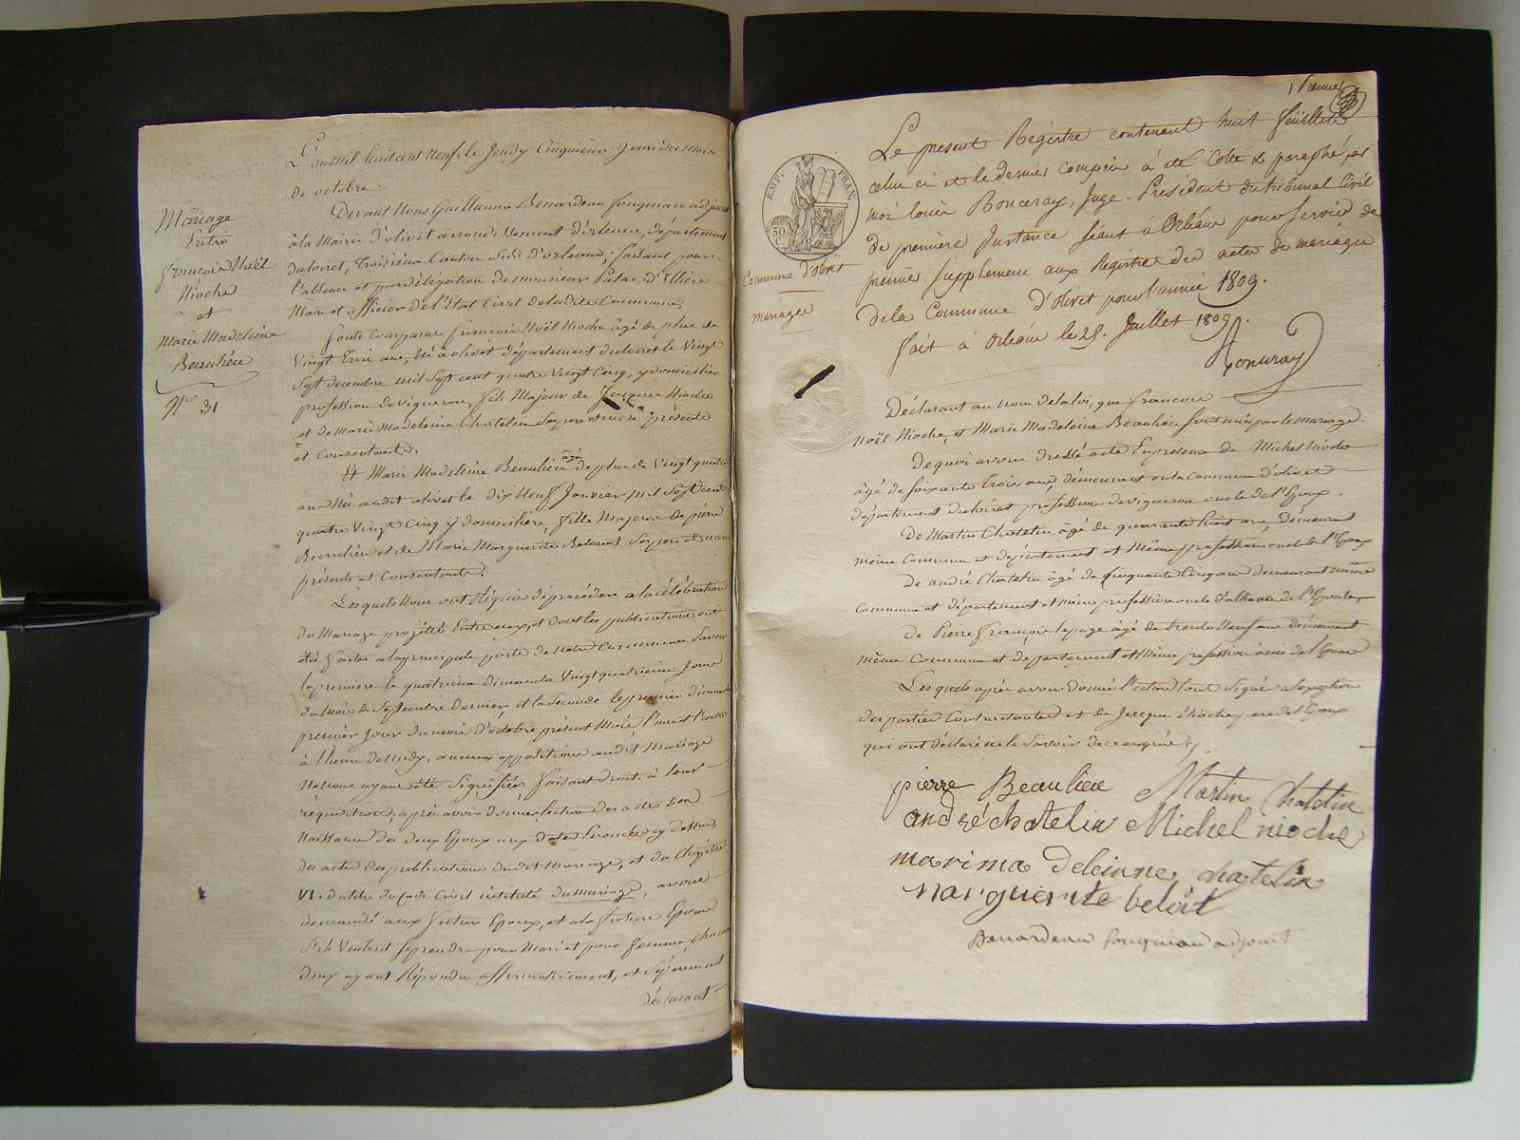 L'an mil huit cent neuf, le Jeudy Cinquième Jour du mois
de octobre.
Mariage
Entre
françois Noël
Nioche
et
Marie Madeleine
Beaulieu
N.o 31
Devant Nous Guillaume Benardeau fouqueau adjoint
à la Mairie d'olivet arrondissement d'orleans, département
du loiret, Troisième Canton sud d'orleans, faisant pour
l'absence et par délégation de monsieur
Maire et officier de l'Etat Civil de ladite Commune
Sont Comparus françois Noël Nioche âgé de plus de
Vingt trois ans, Né à olivet département du loiret le Vingt
Sept decembre mil Sept cent quatre Vingt Cinq, y domicilié
profession de vigneron, fils Majeur de Jacques Nioche
et de Marie Madeleine Chatelin Ses pere et mere présents
et Consentants.
Et Marie Madeleine Beaulieu âgée de plus de Vingt quatre
ans Née audit olivet le dix Neuf Janvier mil Sept cent
quatre Vingt Cinq y domiciliée, fille Majeure de pierre
Beaulieu et de Marie Marguerite Beloit Ses pere et mere
présents et Consentants.
Lesquels Nous ont Réquis de procéder à la célébration
du Mariage projetté Entre eux, et dont les publications ont
été faites à la principale porte de Notre Commune Savoir
la première le quatrième dimanche Vingt quatrième Jour
du Mois de Septembre Dernier et la Seconde le premier dimanche
premier Jour du mois d'octobre présent Mois, l'une et l'autre
à l'heure de midy, aucune opposition audit Mariage
Ne Nous ayant été Signifiée faisant droit à leur
réquisition, après avoir donné lecture des actes de
Naissance des deux Epoux aux dates Enoncées cy dessus
des actes des publications dudit Mariage, et du Chapitre
VI. du titre du Code Civil intitulé du mariage, avons
demandé aux futur Epoux, et à la future Epouse
S'ils Veulent se prendre pour Mari et pour femme, chacun
deux ayant Répondu affirmativement, et Séparément
déclarant
1 Premier
EMP. FRAN.
50
C.
Commune d'olivet
mariages
Le present Registre contenant huit feuillets
celui ci et le dernier compris à été Coté & paraphé par
moi louis Ronceray, Juge-President du tribunal Civil
de première Instance séant à Orléans pour servir de
premier supplement aux Registres des actes de mariages
de la Commune d'olivet pour l'année 1809.
fait à Orléans le 25. Juillet 1809.
Ronceray
Déclarant au nom de la loi, que françois
Noël Nioche, et Marie Madeleine Beaulieu sont unis par le mariage.
De quoi avons dressé acte En présence de Michel Nioche
âgé de soixante trois ans, demeurant en la Commune d'olivet
département du loiret profession de vigneron oncle de l'Epoux.
De Martin Chatelin âgé de quarante huit ans, demeurant
même Commune et département et Même profession oncle de l'Epoux
De andré Chatelin âgé de Cinquante Cinq ans demeurant même
Commune et département et même profession oncle de l'Epoux
De Pierre françois lepage âgé de trente Neuf ans demeurant
même Commune et département et Même profession
Lesquels après avoir donné lecture l'ont Signé à l'exception
des parties Contractantes et de Jacque Nioche pere de l'Epoux
qui ont déclaré ne le Savoir de ce enquis./.
pierre Beaulieu Martin Chatelin
andré chatelin Michel nioche
marima deleinne chatelin
marguerite beloit
Benardeau fouqueau adjoint